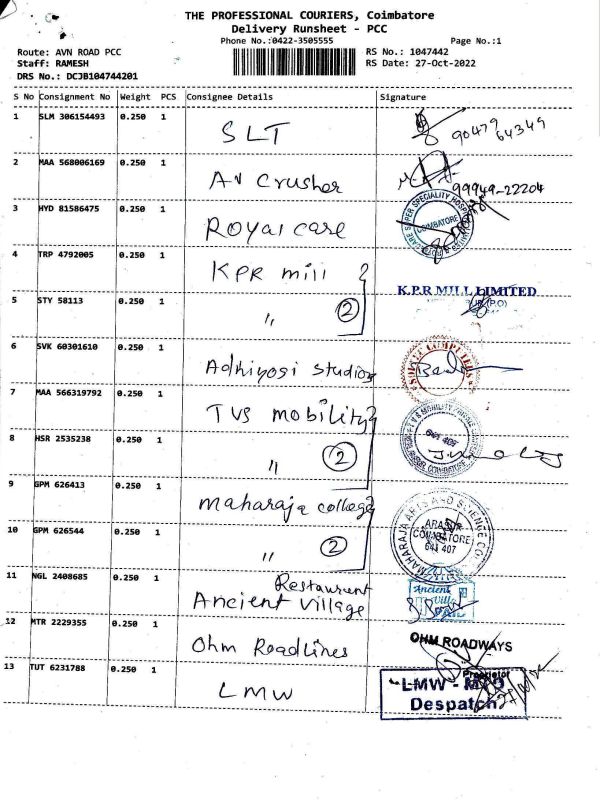 THE PROFESSIONAL COURIERS, Coimbatore
Delivery Runsheet - PCC
Phone No.:0422-3505555 Page No.:1
Route: AVN ROAD PCC RS No.: 1047442
Staff: RAMESH RS Date: 27-Oct-2022
DRS No.: DCJB104744201
S No Consignment No Weight PCS Consignee Details Signature
1 SLM 306154493 0.250 1 SLT 90479 64349
2 MAA 568006169 0.250 1 AV Crusher 99949-22204
3 HYD 81586475 0.250 1 Royal care COIMBATORE
4 TRP 4792005 0.250 1 KPR mill K.P.R MILL LIMITED
5 STY 58113 0.250 1 〃 2
6 SVK 60301610 0.250 1 Adhiyogi Studios
7 MAA 566319792 0.250 1 TVS mobility TVS MOBILITY 641 407
8 HSR 2535238 0.250 1 〃 2
9 GPM 626413 0.250 1 maharaja college
10 GPM 626544 0.250 1 〃 2 MAHARAJA ARTS AND SCIENCE COIMBATORE 641 407
11 NGL 2408685 0.250 1 Ancient Village Restaurent Ancient Village
12 MTR 2229355 0.250 1 Ohm Roadlines OHM ROADWAYS
Proprietor
13 TUT 6231788 0.250 1 LMW LMW - MTD
Despatch